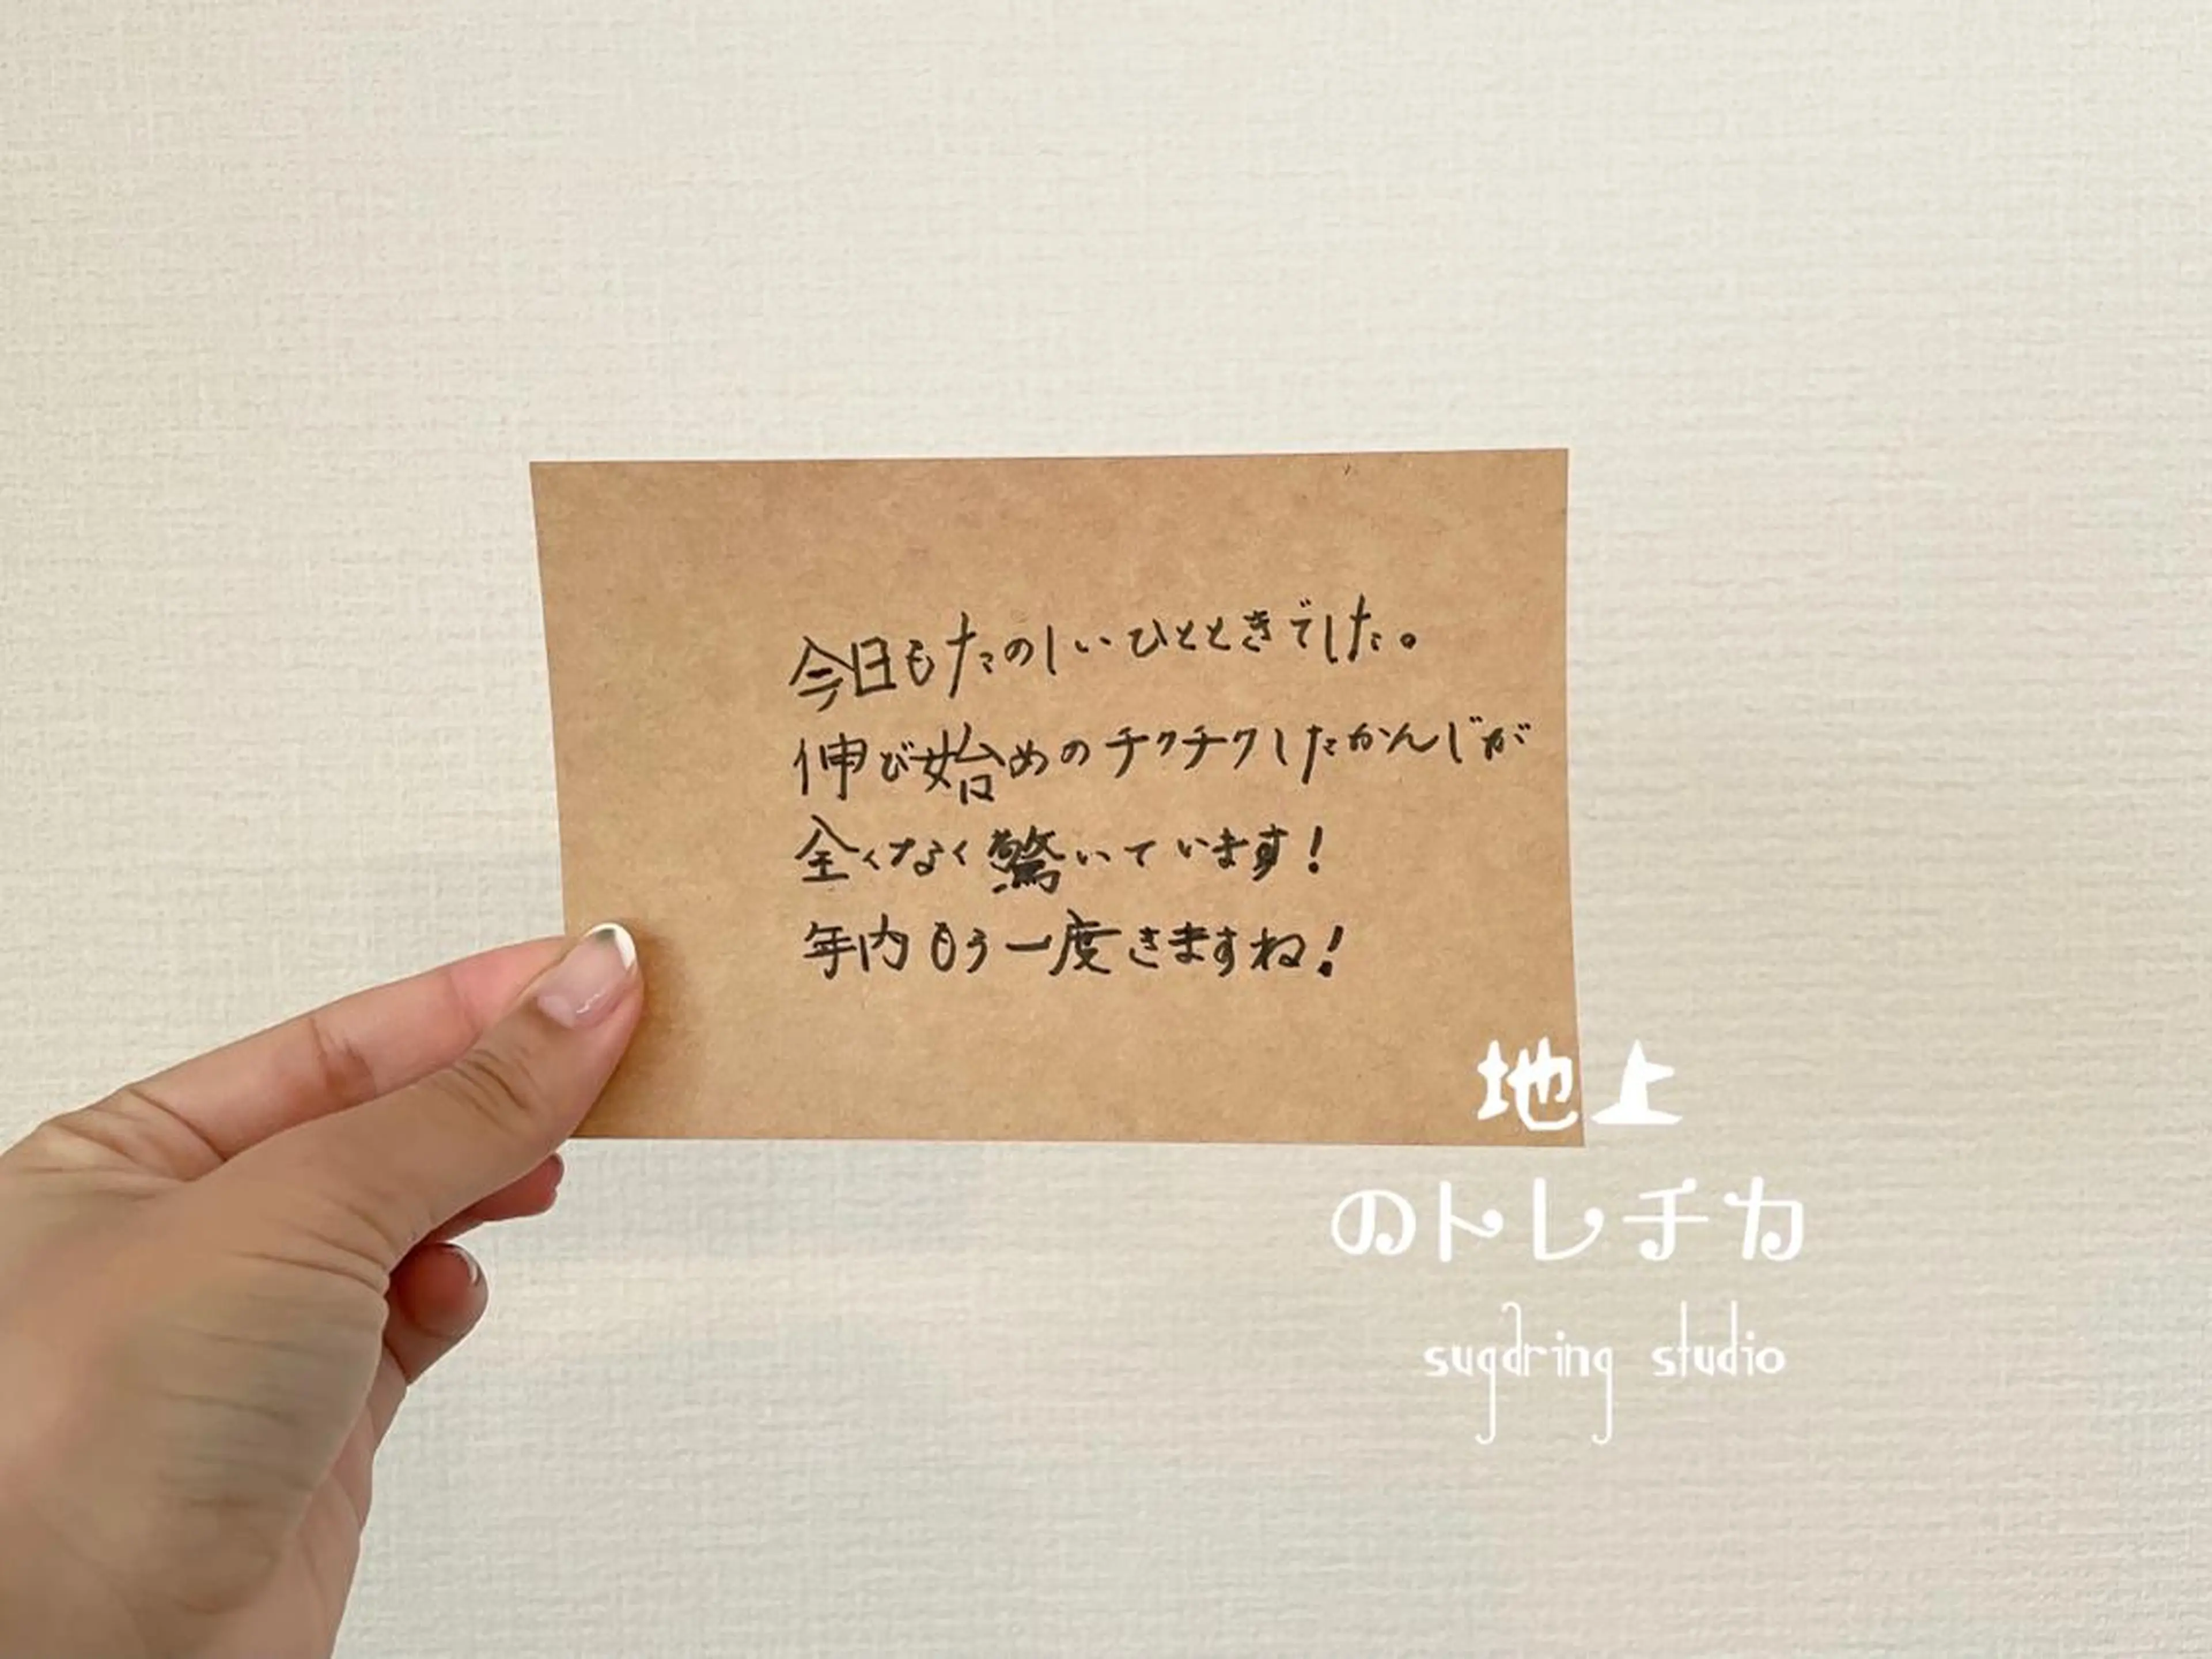 今日もたのしいひとときでした。
伸び始めのチクチクしたかんじが
全くなく驚いています!
年内もう一度きますね!
地上
のトレチカ
sugaring studio